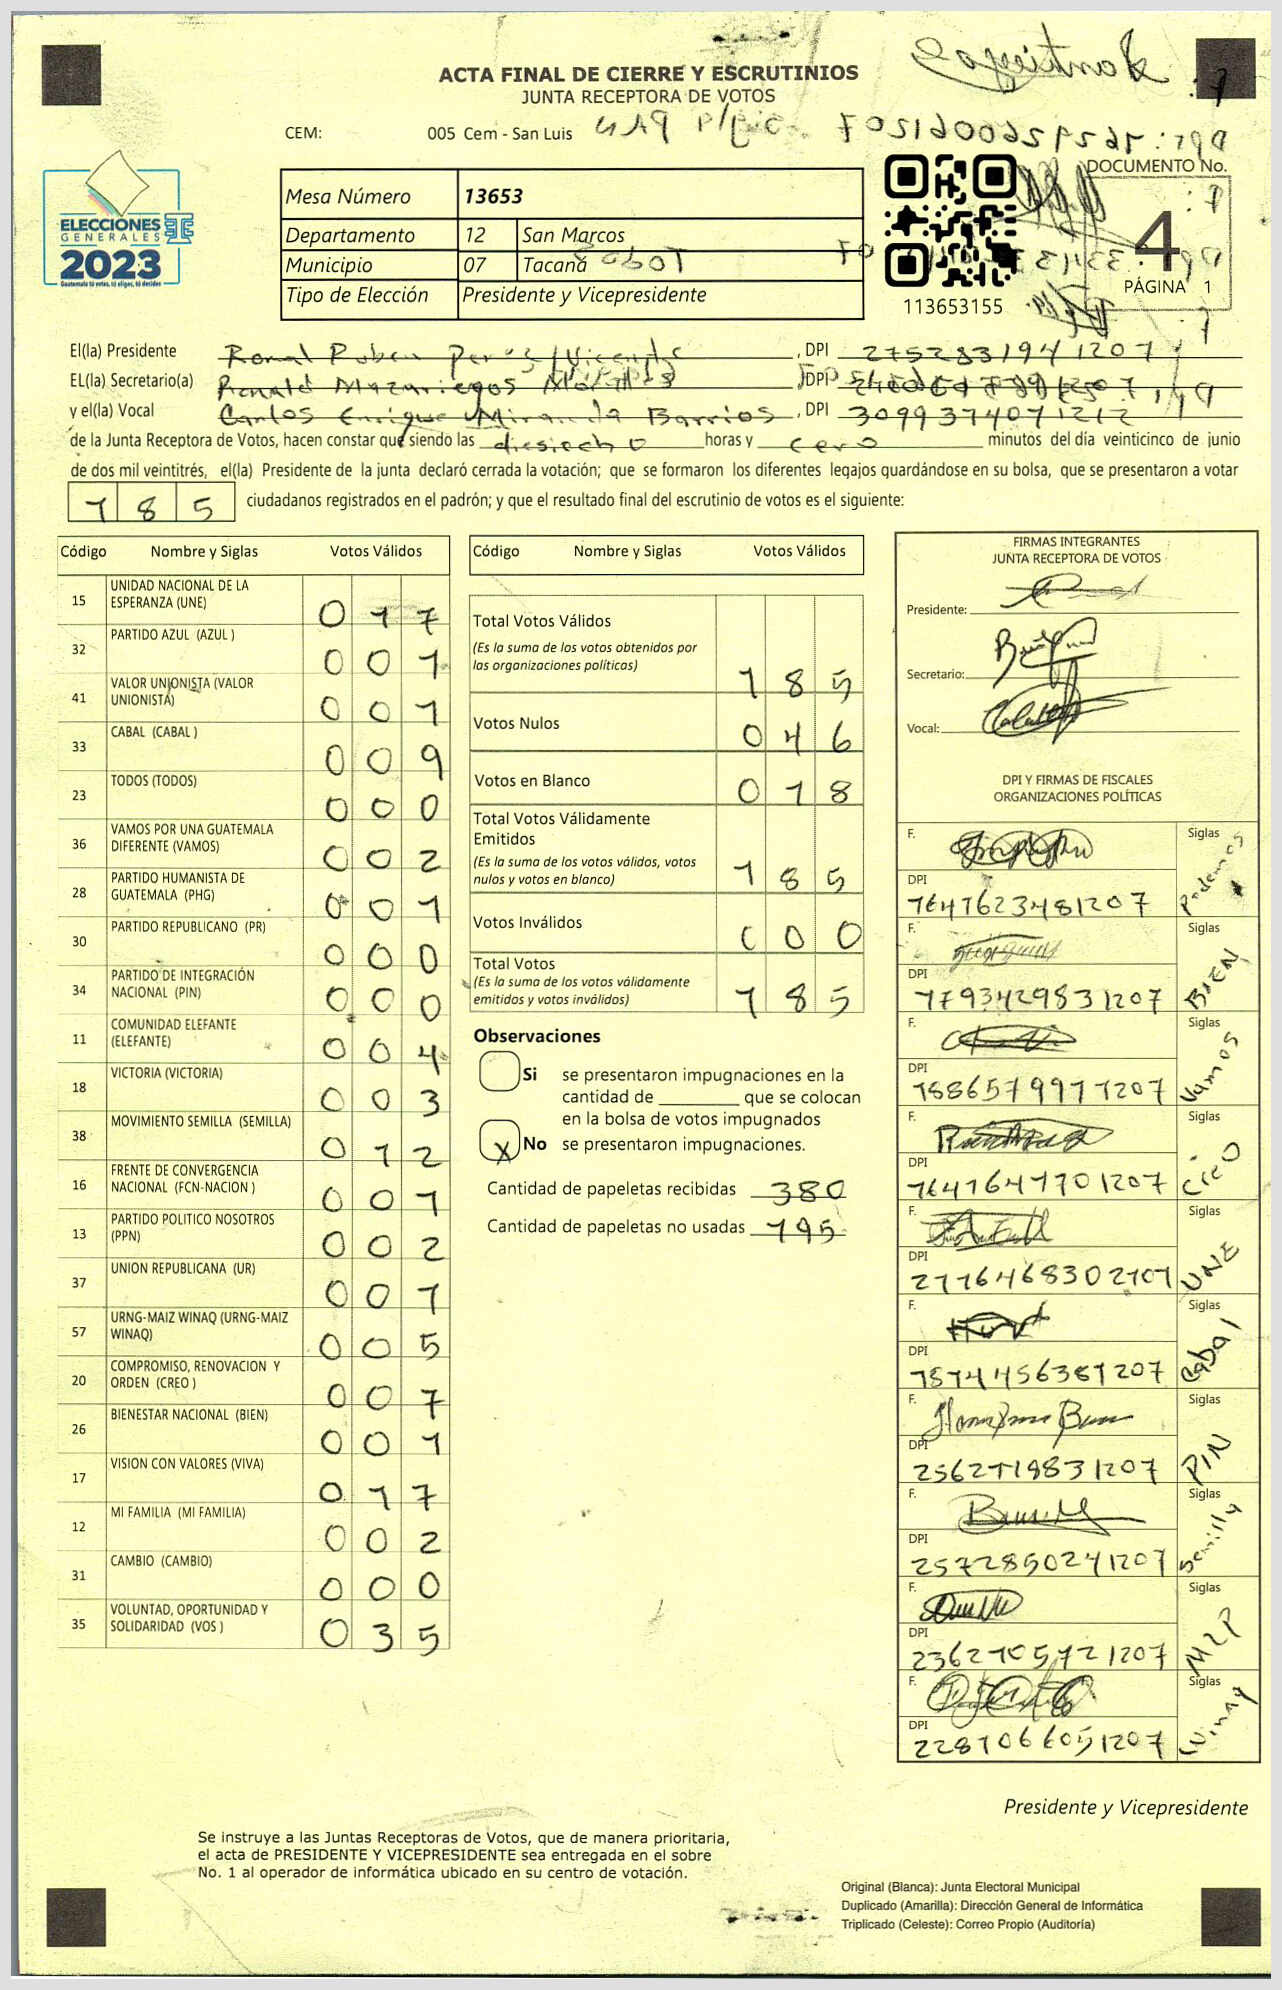 ACTA FINAL DE CIERRE Y ESCRUTINIOS
JUNTA RECEPTORA DE VOTOS
CEM: 005 Cem - San Luis
DOCUMENTO No.
4
PÁGINA 1
ELECCIONES
GENERALES
2023
Guatemala tú votas, tú eliges, tú decides
Mesa Número 13653
Departamento 12 San Marcos
Municipio 07 Tacaná
Tipo de Elección Presidente y Vicepresidente
113653155
El(la) Presidente Ronal Ruben Perez Vicente, DPI 2752831941207
EL(la) Secretario(a) Ronald Mazariegos, DPI
y el(la) Vocal Carlos Enrique Miranda Barrios, DPI 3099374071212
de la Junta Receptora de Votos, hacen constar que siendo las diesiocho horas y cero minutos del día veinticinco de junio
de dos mil veintitrés, el(la) Presidente de la junta declaró cerrada la votación; que se formaron los diferentes legajos guardándose en su bolsa, que se presentaron a votar
185 ciudadanos registrados en el padrón; y que el resultado final del escrutinio de votos es el siguiente:
Código Nombre y Siglas Votos Válidos
15 UNIDAD NACIONAL DE LA ESPERANZA (UNE) 017
32 PARTIDO AZUL (AZUL ) 001
41 VALOR UNIONISTA (VALOR UNIONISTA) 001
33 CABAL (CABAL ) 009
23 TODOS (TODOS) 000
36 VAMOS POR UNA GUATEMALA DIFERENTE (VAMOS) 002
28 PARTIDO HUMANISTA DE GUATEMALA (PHG) 001
30 PARTIDO REPUBLICANO (PR) 000
34 PARTIDO DE INTEGRACIÓN NACIONAL (PIN) 000
11 COMUNIDAD ELEFANTE (ELEFANTE) 004
18 VICTORIA (VICTORIA) 003
38 MOVIMIENTO SEMILLA (SEMILLA) 012
16 FRENTE DE CONVERGENCIA NACIONAL (FCN-NACION ) 001
13 PARTIDO POLITICO NOSOTROS (PPN) 002
37 UNION REPUBLICANA (UR) 001
57 URNG-MAIZ WINAQ (URNG-MAIZ WINAQ) 005
20 COMPROMISO, RENOVACION Y ORDEN (CREO ) 007
26 BIENESTAR NACIONAL (BIEN) 001
17 VISION CON VALORES (VIVA) 017
12 MI FAMILIA (MI FAMILIA) 002
31 CAMBIO (CAMBIO) 000
35 VOLUNTAD, OPORTUNIDAD Y SOLIDARIDAD (VOS ) 035
Código Nombre y Siglas Votos Válidos
Total Votos Válidos 185
(Es la suma de los votos obtenidos por
las organizaciones políticas)
Votos Nulos 046
Votos en Blanco 018
Total Votos Válidamente
Emitidos
(Es la suma de los votos válidos, votos
nulos y votos en blanco) 185
Votos Inválidos 000
Total Votos
(Es la suma de los votos válidamente
emitidos y votos inválidos) 185
Observaciones
Si se presentaron impugnaciones en la
cantidad de ________ que se colocan
en la bolsa de votos impugnados
X No se presentaron impugnaciones.
Cantidad de papeletas recibidas 380
Cantidad de papeletas no usadas 195
FIRMAS INTEGRANTES
JUNTA RECEPTORA DE VOTOS
Presidente:
Secretario:
Vocal:
DPI Y FIRMAS DE FISCALES
ORGANIZACIONES POLÍTICAS
F. Siglas Podemos
DPI 1641623481207
F. Siglas BIEN
DPI 1793429831207
F. Siglas Vamos
DPI 1886579971207
F. Siglas
DPI 1641641701207
F. Siglas UNE
DPI
F. Siglas Cabal
DPI
F. Siglas PIN
DPI 2562719831207
F. Siglas Semilla
DPI 2572850241207
F. Siglas MLP
DPI 2362705721207
F. Siglas Winaq
DPI 2281066051207
Presidente y Vicepresidente
Se instruye a las Juntas Receptoras de Votos, que de manera prioritaria,
el acta de PRESIDENTE Y VICEPRESIDENTE sea entregada en el sobre
No. 1 al operador de informática ubicado en su centro de votación.
Original (Blanca): Junta Electoral Municipal
Duplicado (Amarilla): Dirección General de Informática
Triplicado (Celeste): Correo Propio (Auditoría)